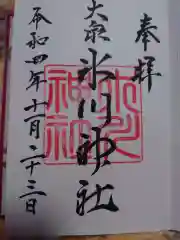 奉拝
大泉氷川神社
氷川
神社
令和四年十一月二十三日